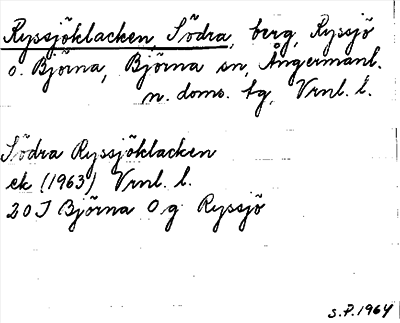 Ryssjöklacken, Södra, berg, Ryssjö
o. Björna, Björna sn, Ångermanl.
n. doms. tg, Vrnl. l.
Södra Ryssjöklacken
ek (1963) Vrnl. l.
20 J Björna O g Ryssjö
S.P. 1964